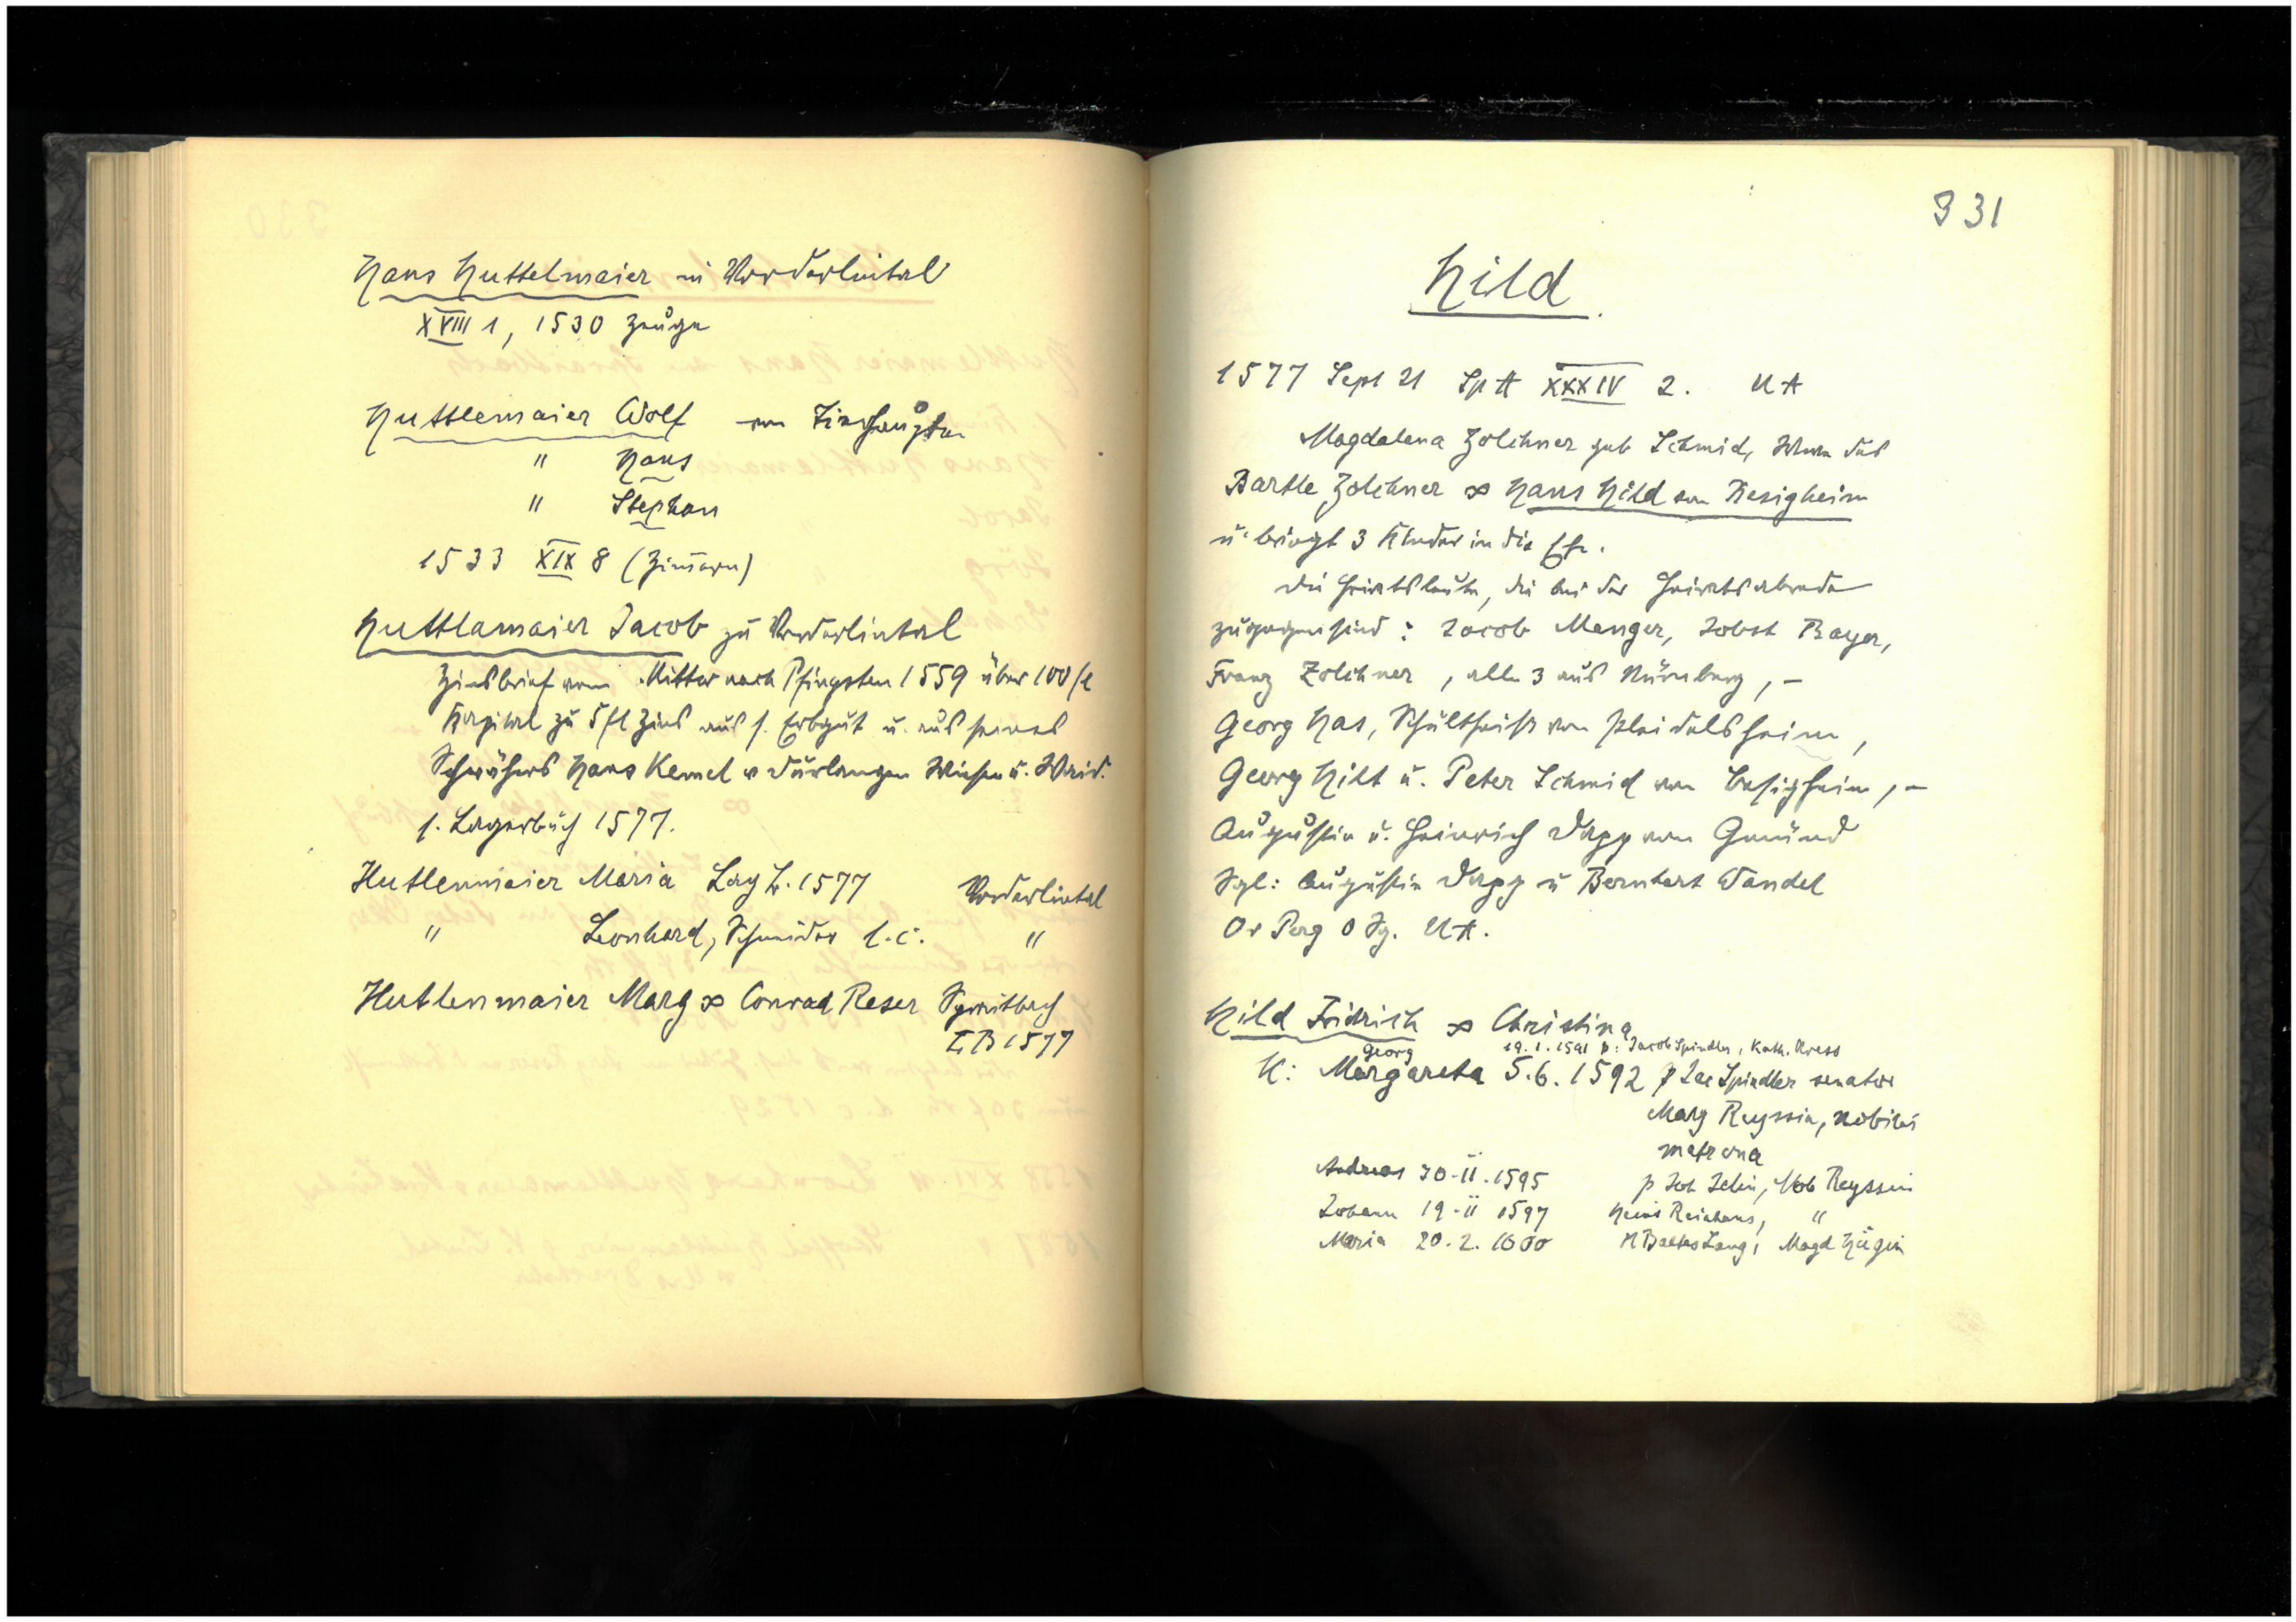 Hans Huttelmaier in Vorderlintal
XVIII 1, 1530 Zeuge
Huttlemaier Wolf von Zimerhaugsten
" Hans
" Stephan
1533 XIX 8 (Zimern)
Huttlamaier Jacob zu Vorderlintal
Zinsbrief vom Mittw nach Pfingsten 1559 über 100 fl
Kapital zu 5 fl Zins aus s. Erbgut u. aus seines
Schwähers Hans Kemel v Durlangen Wiesen u. Waid.
s. Lagerbuch 1577.
Hutlenmaier Maria Lag b. 1577 Vorderlintal
" Leonhard, Schneider l.c. "
Hutlenmaier Marg ∞ Conrad Reser Spraitbach
LB 1577
331
Hild
1577 Sept 21 Sp A XXXIV 2. UA
Magdalena Zolchner geb Schmid, Witwe des
Bartle Zolchner ∞ Hans Hild von Besigheim
u. bringt 3 Kinder in die Ehe.
Die Heiratsleute, die bei der Heiratsabrede
zugegen sind: Jacob Menger, Jobst Bayer,
Franz Zolchner, alle 3 aus Nürnberg, –
Georg Has, Schultheiss von Pleidelsheim,
Georg Hilt u. Peter Schmid von Besigheim, –
Augustin u. Heinrich Dapp von Gmünd
Sgl: Augustin Dapp u Bernhart Wandel
Or Perg 0 Sg. UA.
Hild Fridrich ∞ Christina
Georg 19.1.1591 p: Jacob Spindler, Kath. Kress
K: Margareta 5.6.1592 p Jac Spindler senator
Marg Reyssin, nobilis
matrona
Andreas 30.II.1595 p Joh Jelin, Nob Reyssin
Johann 19.II 1597 Heinr Reinhans, "
Maria 20.2.1600 M Baltas Lang, Magd Hügin